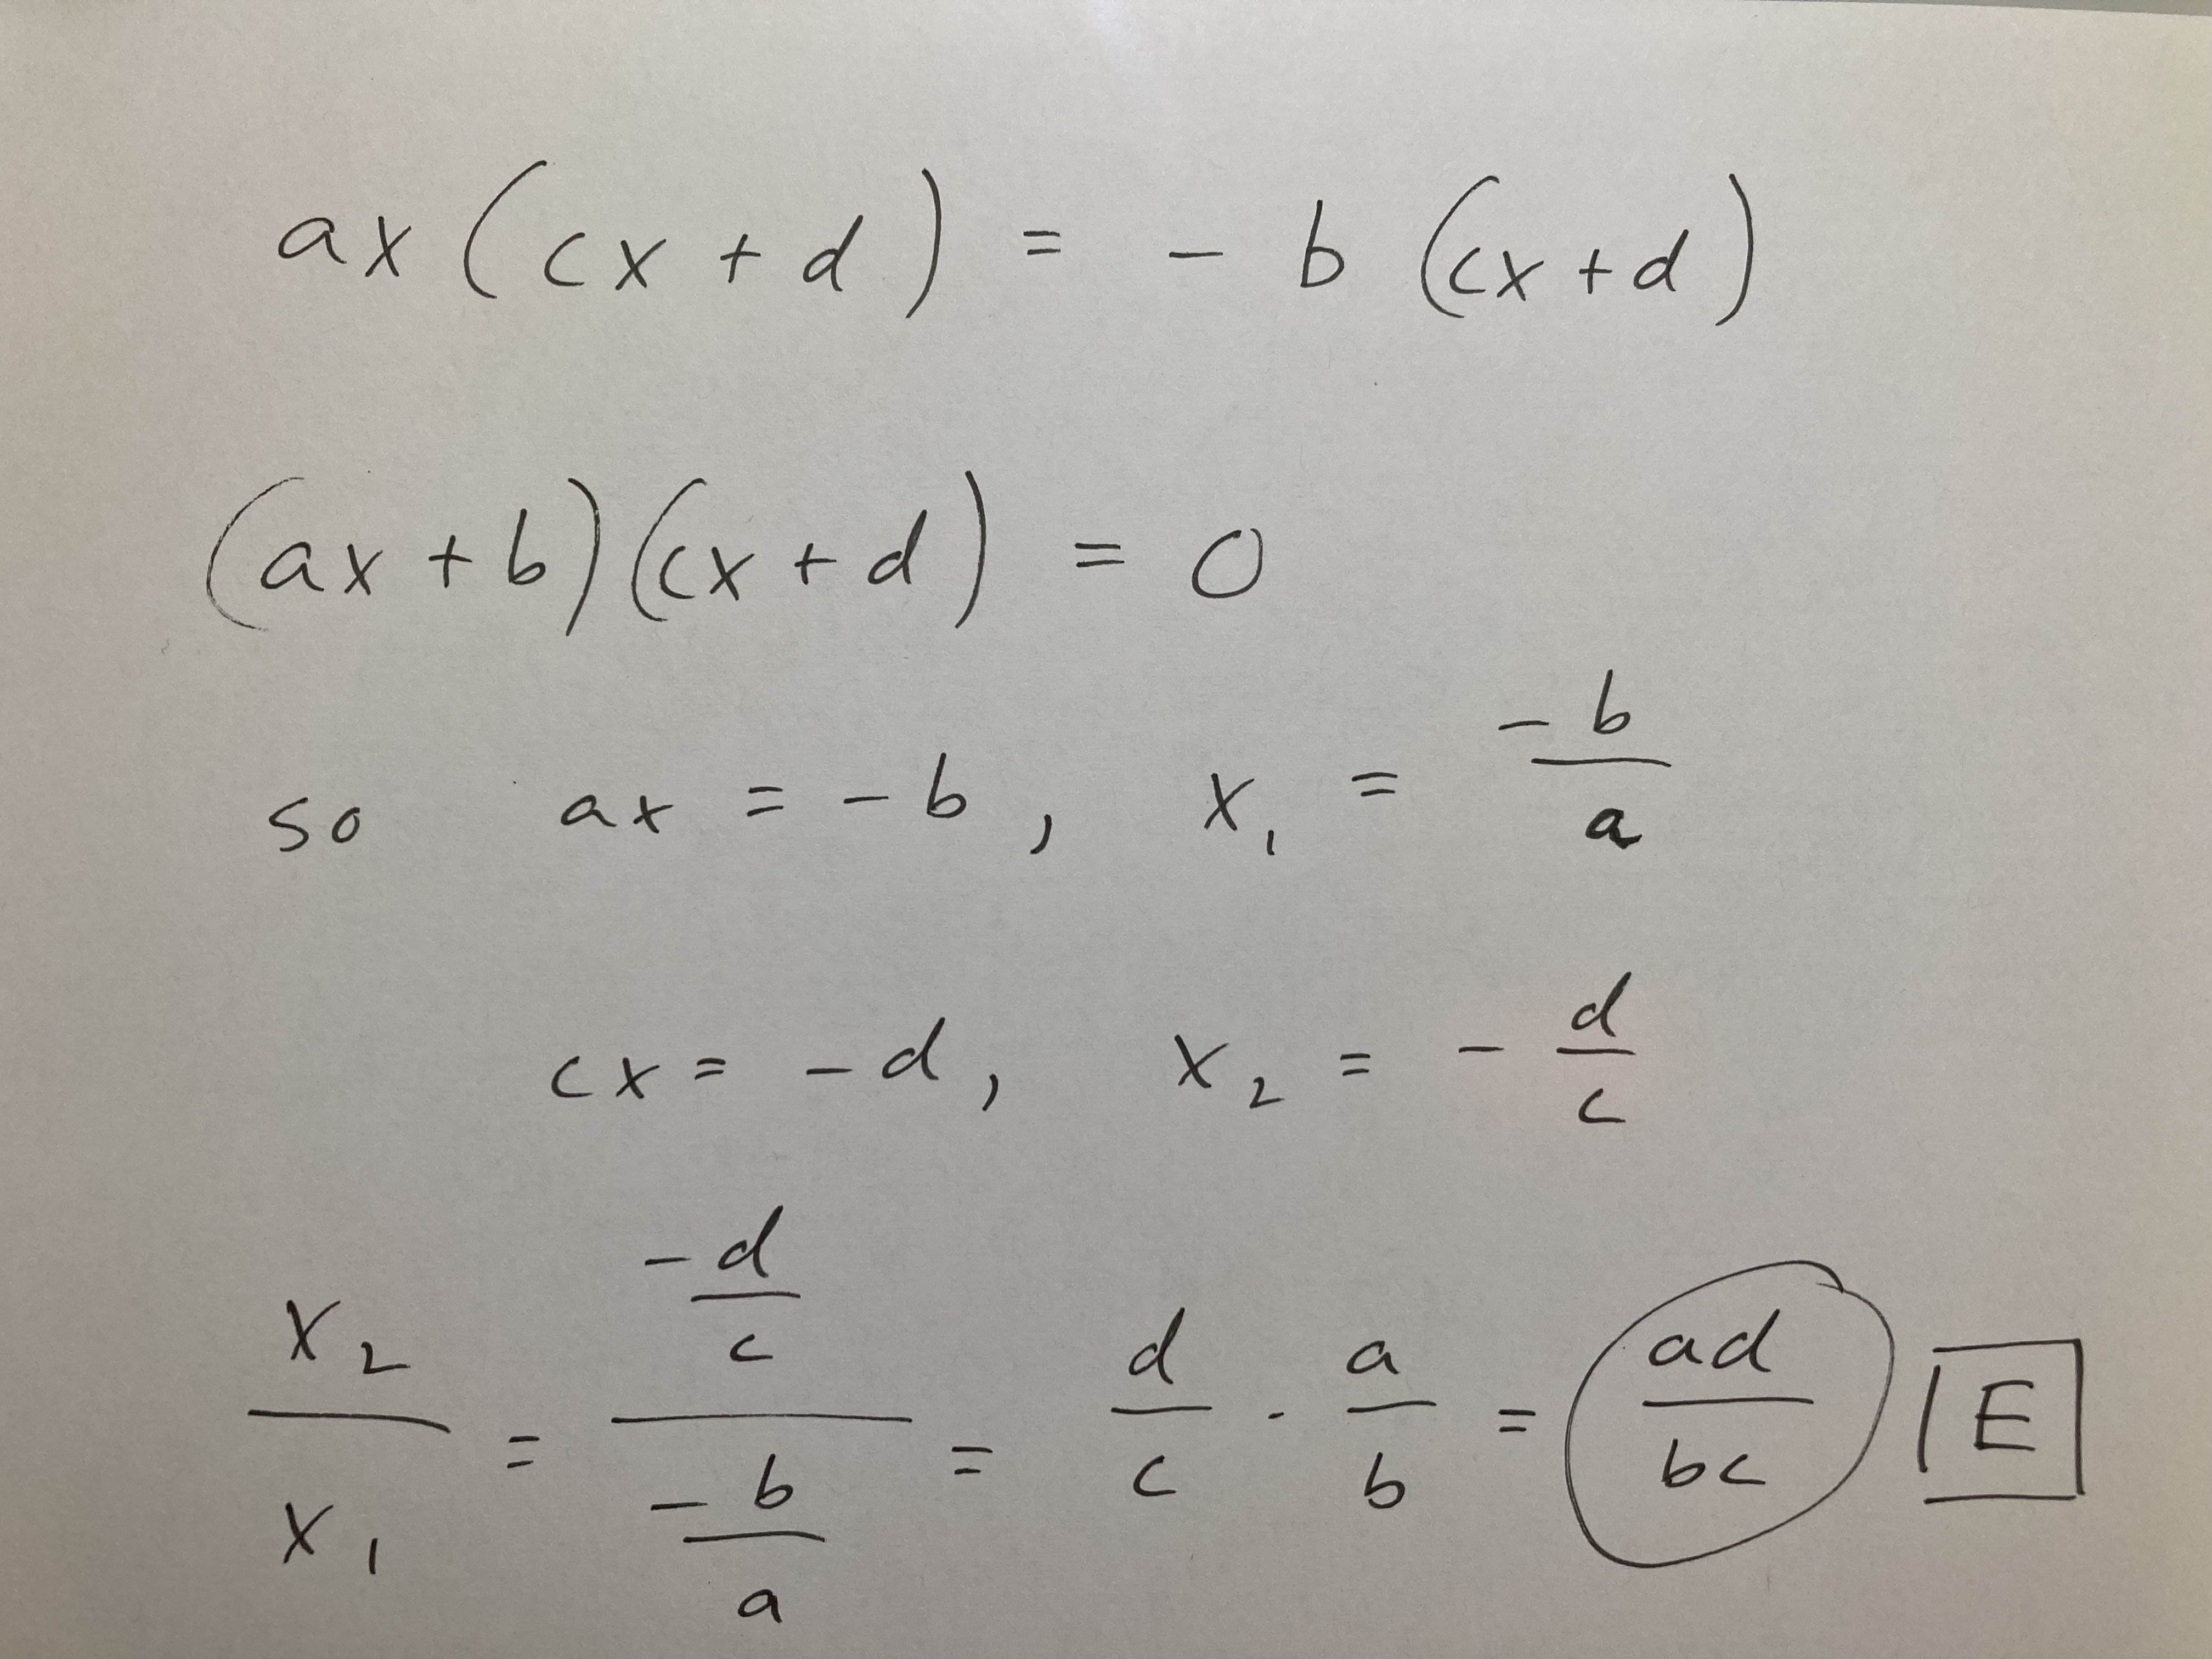 ax(cx+d) = -b(cx+d)
(ax+b)(cx+d) = 0
so ax = -b, x₁ = -b/a
cx = -d, x₂ = -d/c
x₂/x₁ = (-d/c)/(-b/a) = d/c · a/b = ad/bc E